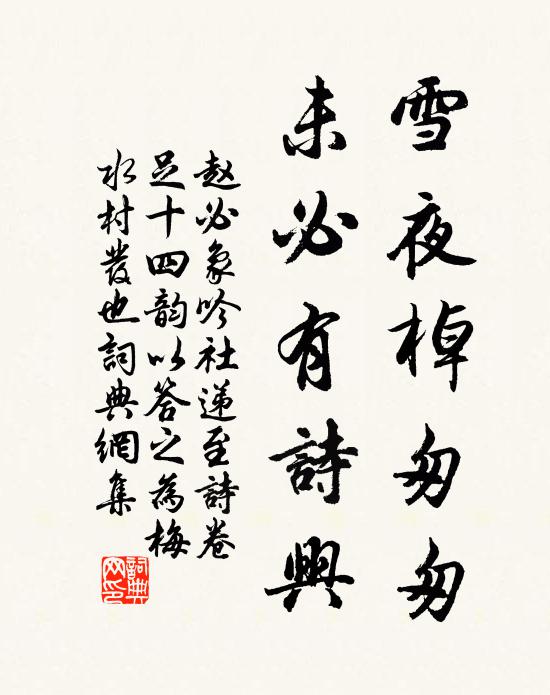 雪夜棹匆匆
未必有詩興
赵必象吟社递至詩卷
足十四韵以答之為梅
水村發也詞典網集
詞典网印